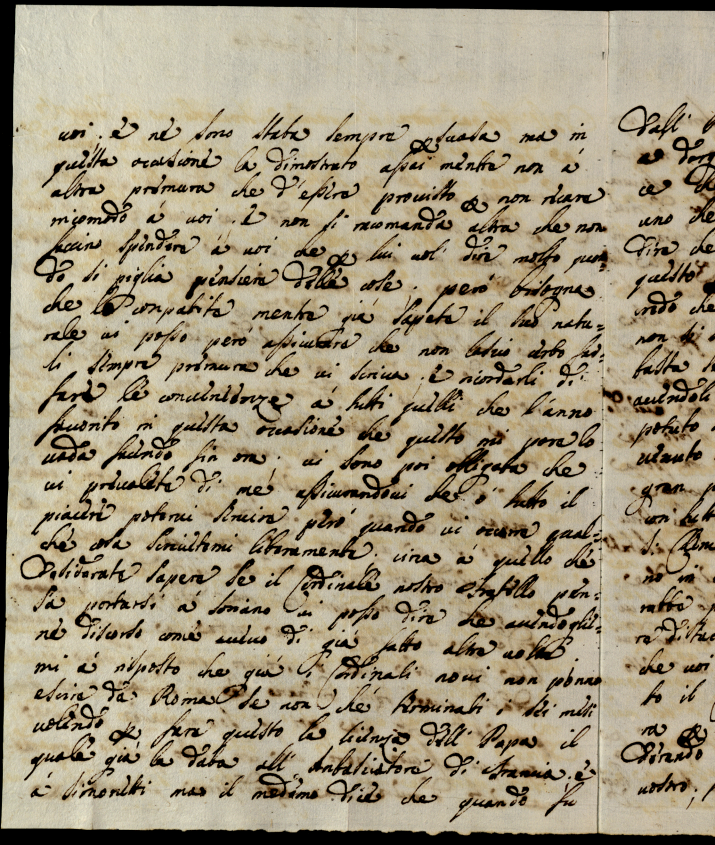 voi. è nè sono stata sempre persuasa ma in
questa ocasione la dimostrato assai mentre non à
altra premura che d'essere provisto e non recare
incomodo à voi. è non si racomanda altra che non
facino spendere à voi che per lui vol dire molto quan=
do si piglia pensiere delle cose. però bisogna
che lo conpatite mentre già sapete il suo natu=
rale vi posso però assicurare che non lascio
li sempre premura che vi scriva. è ricordarli di
fare le convenienze à tuti quelli che l'anno
favorito in questa ocasione che questo mi pare lo
vada facendo fin ora. vi sono poi obligata che
vi prevalete di me assicurandovi che è tutto il
piacere potervi servire però quando vi ocorre qual=
che cosa scrivetemi liberamente. circa à quello che
desiderate sapere se il Cardinale nostro fratello pen=
sa portarsi à Soriano vi posso dire che avendogli=
ne discorso come avevo di già fatto altre volte
mi à risposto che già i Cardinali novi non ponno
escire da Roma se non che terminati i sei mesi
volendo fare questo la licenza dell Papa il
quale già la data all Anbasciatore di Francia. è
à Simonetti ma il medemo dice che quando fu
dall
a
ce
uno che
dire che
questo
credo che
non si
basta
avendoli
potuto
venuto
gran
con tutt
si
no in
rebbe
re
che voi
to il
ra
vostro;